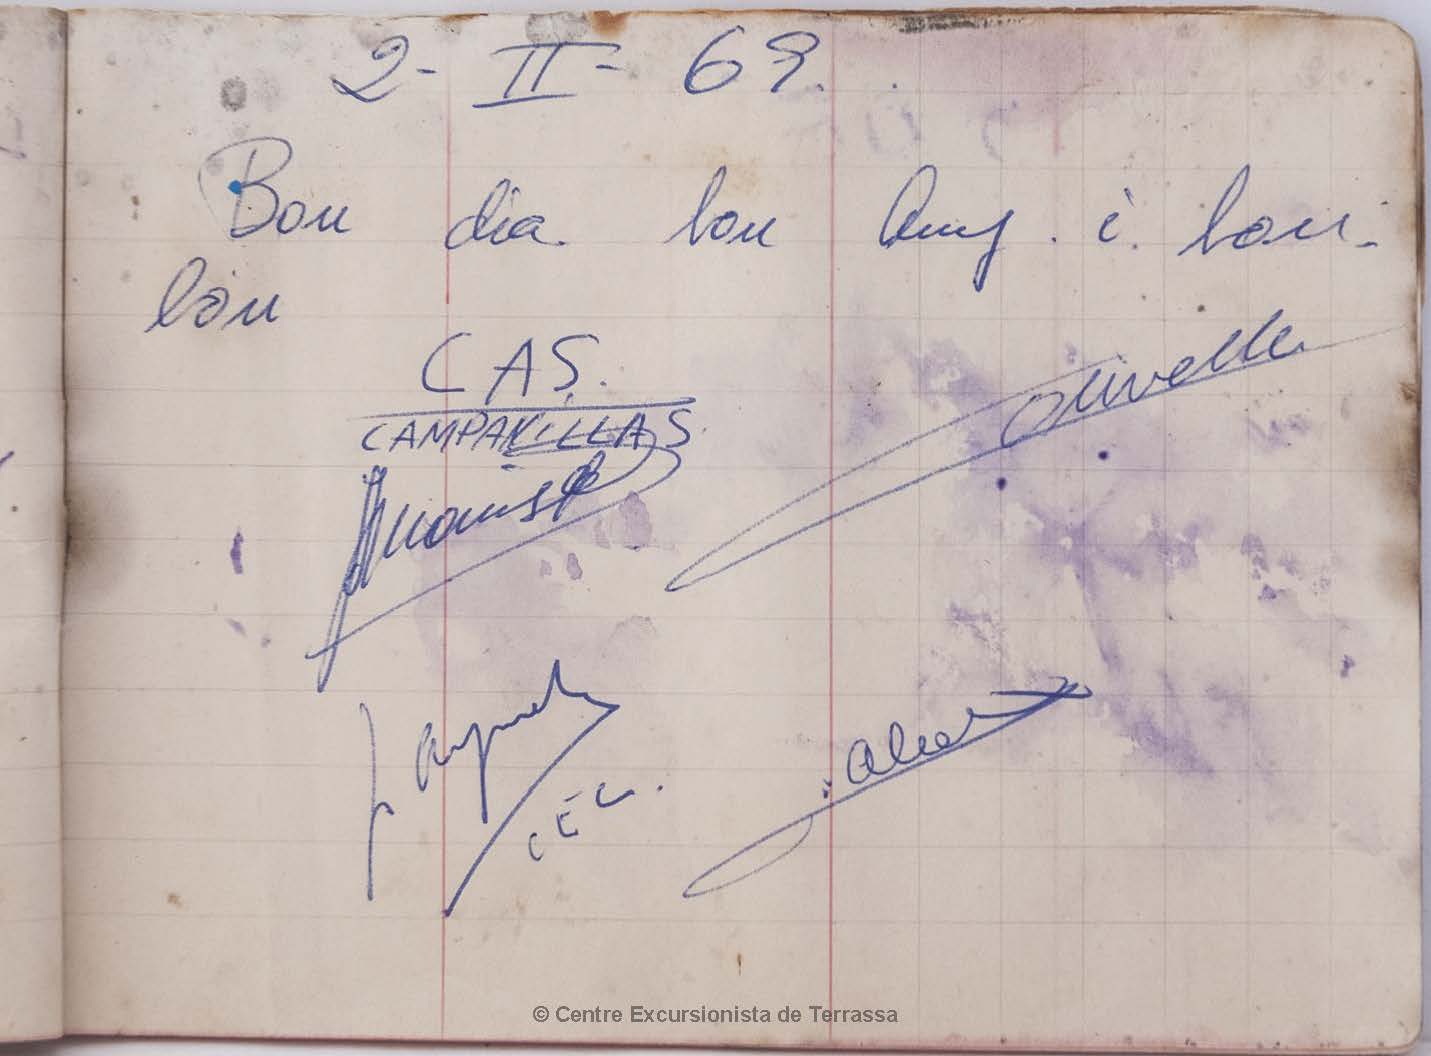 2-II-69.
Bon dia. bon Any. i bon-
bon
CAS.
CAMPANILLAS.
Olivella
CEC.
© Centre Excursionista de Terrassa